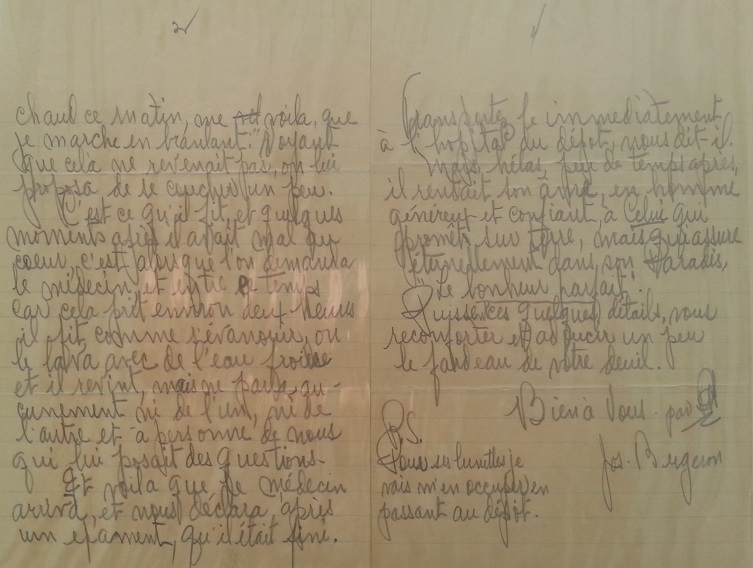 2
chaud ce matin, me voila, que
je marche en branlant." Voyant
que cela ne revenait pas, on lui
proposa de se coucher un peu.
C'est ce qu'il fit, et quelques
moments après il avait mal au
coeur, c'est alors que l'on demanda
le médecin et entre temps
car cela prit environ deux heures
il fit, comme s'évanouir, on
le lava avec de l'eau froide
et il revint, mais ne parla, au-
cunement ni de l'un, ni de
l'autre et à personne de nous
qui lui posait des questions.
Et voila que le médecin
arriva, et nous déclara, après
un exament, qu'il était fini.
Transportez le immédiatement
à l'hopital du dépôt, nous dit-il.
Mais, hélas, peu de temps après,
il rendait son âme, en homme
généreux et confiant, à Celui qui
promet sur terre, mais qui assure
éternellement dans son Paradis,
"Le bonheur parfait"
Puissent ces quelques détails, vous
reconforter et adoucir un peu
le fardeau de votre deuil.
Bien à Vous. par
Jos. Bergeron
P.S.
Pour ses lunettes je
vais m'en occuper en
passant au dépôt.